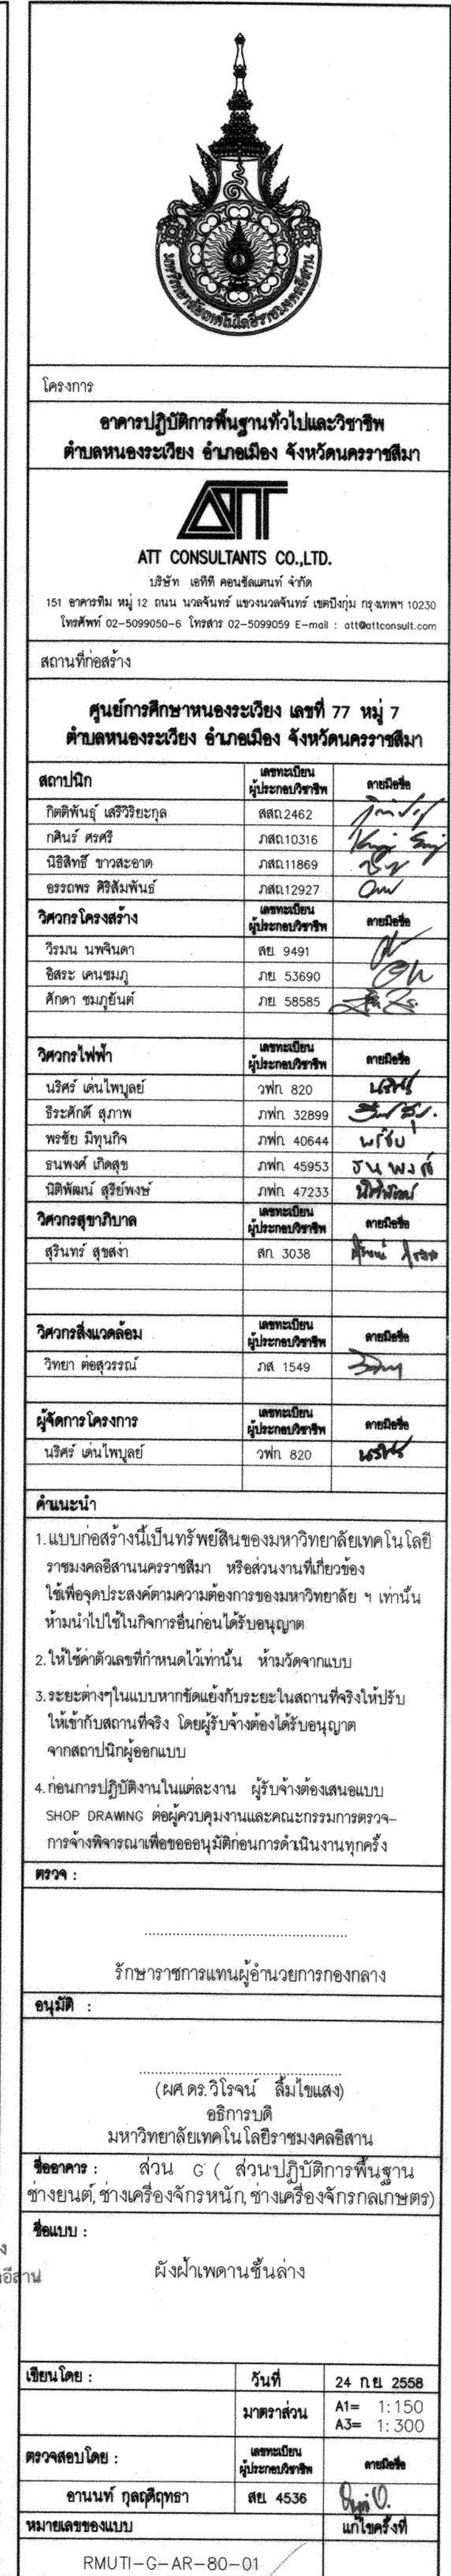 มหาวิทยาลัยเทคโนโลยีราชมงคลอีสาน
โครงการ
อาคารปฏิบัติการพื้นฐานทั่วไปและวิชาชีพ
ตำบลหนองระเวียง อำเภอเมือง จังหวัดนครราชสีมา
ATT
ATT CONSULTANTS CO.,LTD.
บริษัท เอทีที คอนซัลแตนท์ จำกัด
151 อาคารทีม หมู่ 12 ถนน นวลจันทร์ แขวงนวลจันทร์ เขตบึงกุ่ม กรุงเทพฯ 10230
โทรศัพท์ 02-5099050-6 โทรสาร 02-5099059 E-mail : att@attconsult.com
สถานที่ก่อสร้าง
ศูนย์การศึกษาหนองระเวียง เลขที่ 77 หมู่ 7
ตำบลหนองระเวียง อำเภอเมือง จังหวัดนครราชสีมา
สถาปนิก เลขทะเบียนผู้ประกอบวิชาชีพ ลายมือชื่อ
กิตติพันธุ์ เสรีวิริยะกุล สสถ.2462
กศินร์ ศรศรี ภสถ.10316
นิธิสิทธิ์ ขาวสะอาด ภสถ.11869
อรรถพร ศิริสัมพันธ์ ภสถ.12927
วิศวกรโครงสร้าง เลขทะเบียนผู้ประกอบวิชาชีพ ลายมือชื่อ
วีรมน นพจินดา สย. 9491
อิสระ เคนชมภู ภย. 53690
ศักดา ชมภูยันต์ ภย. 58585
วิศวกรไฟฟ้า เลขทะเบียนผู้ประกอบวิชาชีพ ลายมือชื่อ
นริศร์ เด่นไพบูลย์ วฟก. 820 นริศร์
ธีระศักดิ์ สุภาพ ภฟก. 32899
พรชัย มิทุนกิจ ภฟก. 40644 พรชัย
ธนพงศ์ เกิดสุข ภฟก. 45953 ธนพงศ์
นิติพัฒน์ สุรีย์พงษ์ ภฟก. 47233 นิติพัฒน์
วิศวกรสุขาภิบาล เลขทะเบียนผู้ประกอบวิชาชีพ ลายมือชื่อ
สุรินทร์ สุขสง่า สก. 3038
วิศวกรสิ่งแวดล้อม เลขทะเบียนผู้ประกอบวิชาชีพ ลายมือชื่อ
วิทยา ต่อสุวรรณ์ ภส. 1549
ผู้จัดการโครงการ เลขทะเบียนผู้ประกอบวิชาชีพ ลายมือชื่อ
นริศร์ เด่นไพบูลย์ วฟก. 820 นริศร์
คำแนะนำ
1. แบบก่อสร้างนี้เป็นทรัพย์สินของมหาวิทยาลัยเทคโนโลยี
ราชมงคลอีสานนครราชสีมา หรือส่วนงานที่เกี่ยวข้อง
ใช้เพื่อจุดประสงค์ตามความต้องการของมหาวิทยาลัย ฯ เท่านั้น
ห้ามนำไปใช้ในกิจการอื่นก่อนได้รับอนุญาต
2. ให้ใช้ค่าตัวเลขที่กำหนดไว้เท่านั้น ห้ามวัดจากแบบ
3. ระยะต่างๆในแบบหากขัดแย้งกับระยะในสถานที่จริงให้ปรับ
ให้เข้ากับสถานที่จริง โดยผู้รับจ้างต้องได้รับอนุญาต
จากสถาปนิกผู้ออกแบบ
4. ก่อนการปฏิบัติงานในแต่ละงาน ผู้รับจ้างต้องเสนอแบบ
SHOP DRAWING ต่อผู้ควบคุมงานและคณะกรรมการตรวจ-
การจ้างพิจารณาเพื่อขออนุมัติก่อนการดำเนินงานทุกครั้ง
ตรวจ :
รักษาราชการแทนผู้อำนวยการกองกลาง
อนุมัติ :
(ผศ.ดร.วิโรจน์ ลิ้มไขแสง)
อธิการบดี
มหาวิทยาลัยเทคโนโลยีราชมงคลอีสาน
ชื่ออาคาร : ส่วน G ( ส่วนปฏิบัติการพื้นฐาน
ช่างยนต์, ช่างเครื่องจักรหนัก, ช่างเครื่องจักรกลเกษตร)
ชื่อแบบ :
ผังฝ้าเพดานชั้นล่าง
เขียนโดย : วันที่ 24 ก.ย. 2558
มาตราส่วน A1= 1:150
A3= 1:300
ตรวจสอบโดย : เลขทะเบียนผู้ประกอบวิชาชีพ ลายมือชื่อ
อานนท์ กุลฤดีฤทธา สย. 4536
หมายเลขของแบบ แก้ไขครั้งที่
RMUTI-G-AR-80-01